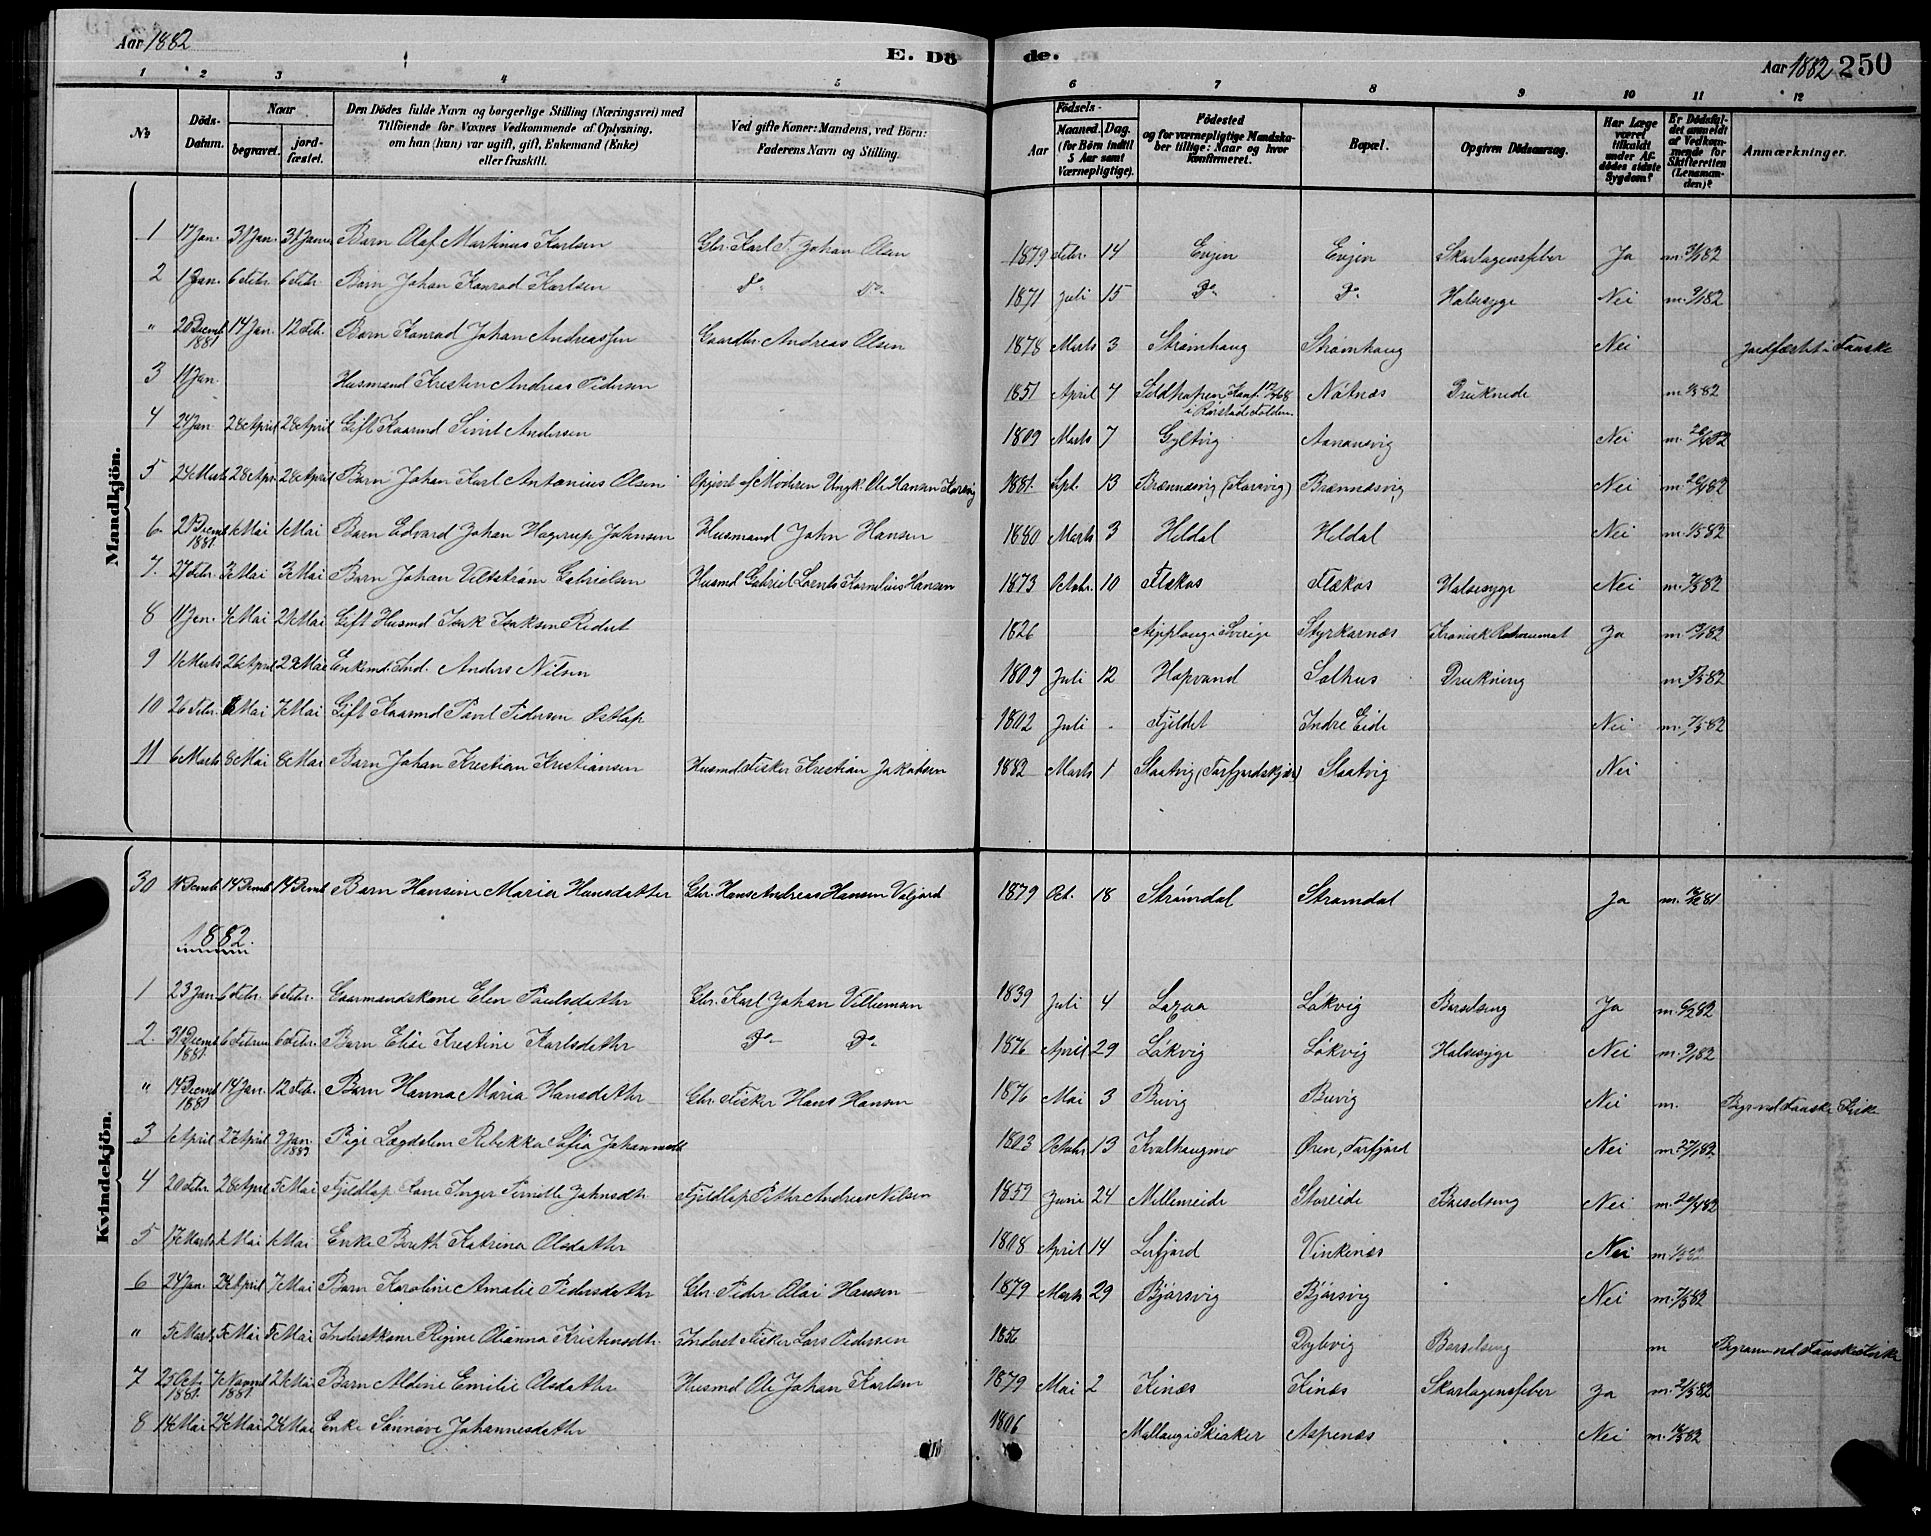 Aar 1882
E. Dö
de.
Aar 1882 250
1 2 3 4 5 6 7 8 9 10 11 12
No
Döds-Datum.
Naar
begravet.
jord-fæstet.
Den Dödes fulde Navn og borgerlige Stilling (Næringsvei) med
Tilföiende for Voxnes Vedkommende af Oplysning,
om han (hun) var ugift, gift, Enkemand (Enke)
eller fraskilt.
Ved gifte Koner: Mandens, ved Börn:
Faderens Navn og Stilling.
Födsels-
Aar
Maaned. Dag.
(for Börn indtil
5 Aar samt
Værnepligtige).
Födested
og for værnepligtige Mandska-
ber tillige: Naar og hvor
Konfirmeret.
Bopæl.
Opgiven Dödsaarsag.
Har Læge
været
tilkaldt
under Af-
dödes sidste
Sygdom?
Er Dödsfal-
det anmeldt
af Vedkom-
mende for
Skifteretten
(Lensman-
den)?
Anmærkninger.
Mandkjön.
1 17 Jan. 31 Jan. 31 Janu. Barn Olaf Martinus Karlsen Gbr. Karl F. Johan Olsen 1879 Febr. 14 Evjen Evjen Skarlagensfeber Ja
2 1 Jan. 6 Febr. 6 Febr. Barn Johan Konrad Karlsen Do Do 1871 Juli 15 Do Do Halssyge Nei
" 20 Decmb. 1881 14 Jan. 12 Feb. Barn Konrad Johan Andreassen Gaardbr. Andreas Olsen 1878 Marts 3 Strømhaug Strømhaug Nei Jordfæstet i Fauske
3 11 Jan. Husmand Kristen Andreas Pedersen 1851 April 4 i Rørstad i Folden Nôtnæs Druknede
4 24 Jan 28 April 28 April Gift Kaarmd Sivert Andersen 1809 Marts 7 Gyltvig Aanansvig Nei
5 24 Marts 28 Apr. 28 April Barn Johan Karl Antonius Olsen Opgivet af Moderen Ungk. Ole Hansen Korsvig 1881 Spt. 13 Brænnasvig (Korsvig) Brænnasvig Nei
6 20 Decmb. 1881 1 Mai 1 Mai Barn Edvard Johan Hagerup Johnsen Husmand John Hansen 1880 Marts 3 Heldal Heldal Nei m. 1/5 82
7. 27 Febr. 3 Mai 3 Mai Barn Johan Veltstrøm Gabrielsen Husmd Gabriel Lornts Kornelius Hansen 1873 Octobr. 10 Flækos Flækos Halssyge Nei
8 11 Jan. 4 Mai 21 Mai Gift Husmd Isak Isaksen Redut 1826 Arjeploug i Sverige Styrkesnæs Kronisk Rheumat Ja
9 11 Marts 26 April 29 Mai Enkemd. Ind. Anders Nilsen 1809 Juli 12 Hopvand Solhus Drukning
10 26 Febr. 6 Mai 7 Mai Gift Kaarmd Pavel Pedersen Østlap 1802 Juli - Fjeldet Indre Eide Nei m. 7/5 82
11 6 Marts 8 Mai 8 Mai Barn Johan Kristian Kristiansen Husmd Fisker Kristian Jakobsen 1882 Marts 1 Slaatvig (Torfjordskjær) Slaatvig Nei
Kvindekjön.
30 14 Decmb. 14 Decmb. Barn Hansine Maria Hansdatter Gbr. Hans Andreas Hansen Valjord 1879 Oct. 18 Strømdal Strømdal Ja
1882
1 23 Jan. 6 Febr. 6 Febr. Gaarmandskone Elen Paulsdatter Gbr. Karl Johan Villumsen 1839 Juli 4 Løkvig Barselseng Ja m. 6/2 82
2. 31 Decmb. 1881. 6 Februar 6 Febr. Barn Elise Kristine Karlsdatter Do Do 1876 April 29 Løkvig Løkvig Halssyge Nei
" 14 Decmb. 1881 14 Jan. 12 Feb. Barn Hanna Maria Hansdatter Gbr. Fisker Hans Hansen 1876 Mai 3 Buvig Buvig Nei m. Begr. ved Fauske Kirke
3 6 April 27 April 9 Jan. 1883 Pige Lægdslem Rebekka Sofia Johannesdt 1803 Octobr. 13 Kvalhaugmo Øren, Torfjord Nei
4 20 Febr. 28 April 5 Mai Fjeldlap Kone Inger Pernille Johnsdtr. Fjeldlap Petter Andreas Nilsen 1859 Juni 24 Millemeide Storeide Barselseng Nei
5 17 Marts 1 Mai 1 Mai Enke Bereth Katrina Olsdatter 1808 April 14 Lerfjord Vinkenæs Nei
6 24 Jan. 24 April 7 Mai Barn Karoline Amalie Pedersdatter Gbr. Peder Olai Hansen 1879 Marts 29 Bjørsvig Bjørsvig Nei m. 7/5 82
" 5 Marts 5 Mai 5 Mai Inderstkone Regine Olianna Kristensdtr. Inderst Fisker Lars Pedersen 1856 Dybvig Barselseng m Begraven ved Fauske Kirke
7 25 Oct. 1881. 7 Novmb. 1881. 21 Mai Barn Aldine Emilie Olsdatter Husmd Ole Johan Karlsen 1879 Mai 2 Kinæs Kinæs Skarlagensfeber Ja
8 14 Mai 24 Mai 24 Mai Enke Sønnøve Johannesdatter 1806 Aspenæs Nei